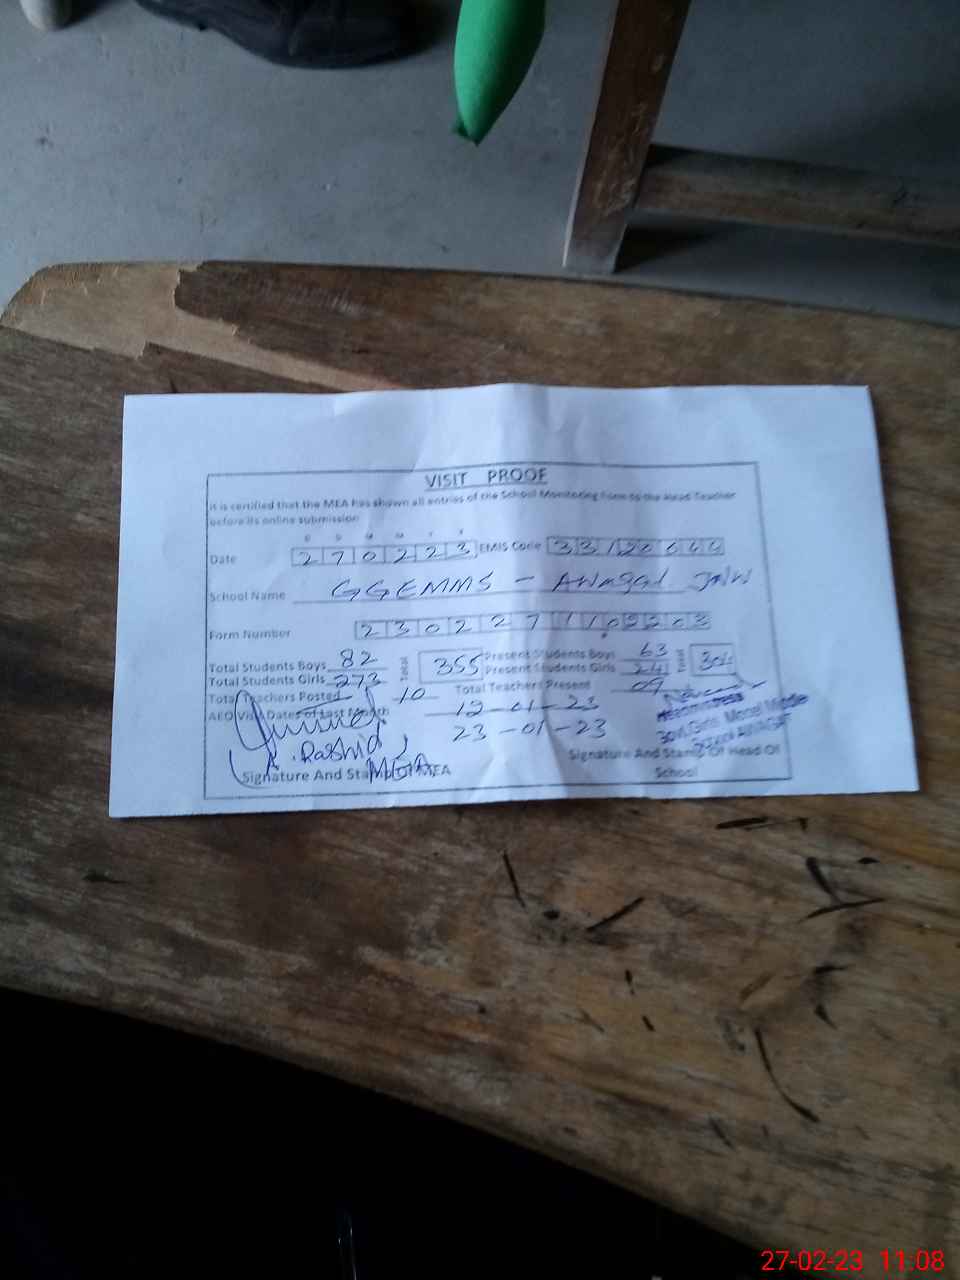 VISIT PROOF
It is certified that the MEA has shown all entries of the School Monitoring Form to the Head Teacher
before its online submission
D D M M Y Y
Date 270223 EMIS Code
School Name GGEMMS - AWAGAT JNW
Form Number 230227110
Total Students Boys 82 Total 355 Present Students Boys 63
Total Students Girls 273 Present Students Girls 241 Total
Total Teachers Posted 10 Total Teachers Present 09
AEO Visit Dates of Last Month 12-01-23
23-01-23
A. Rashid
MEA
Signature And Stamp Of MEA
Headmistress
Govt. Girls Model Middle
School AWAGAT
Signature And Stamp Of Head Of
School
27-02-23 11:08